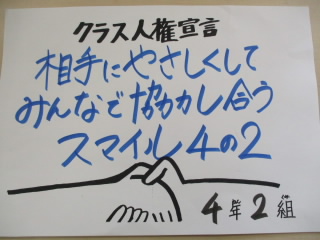 クラス人権宣言
相手にやさしくして
みんなで協力し合う
スマイル4の2
4年2組